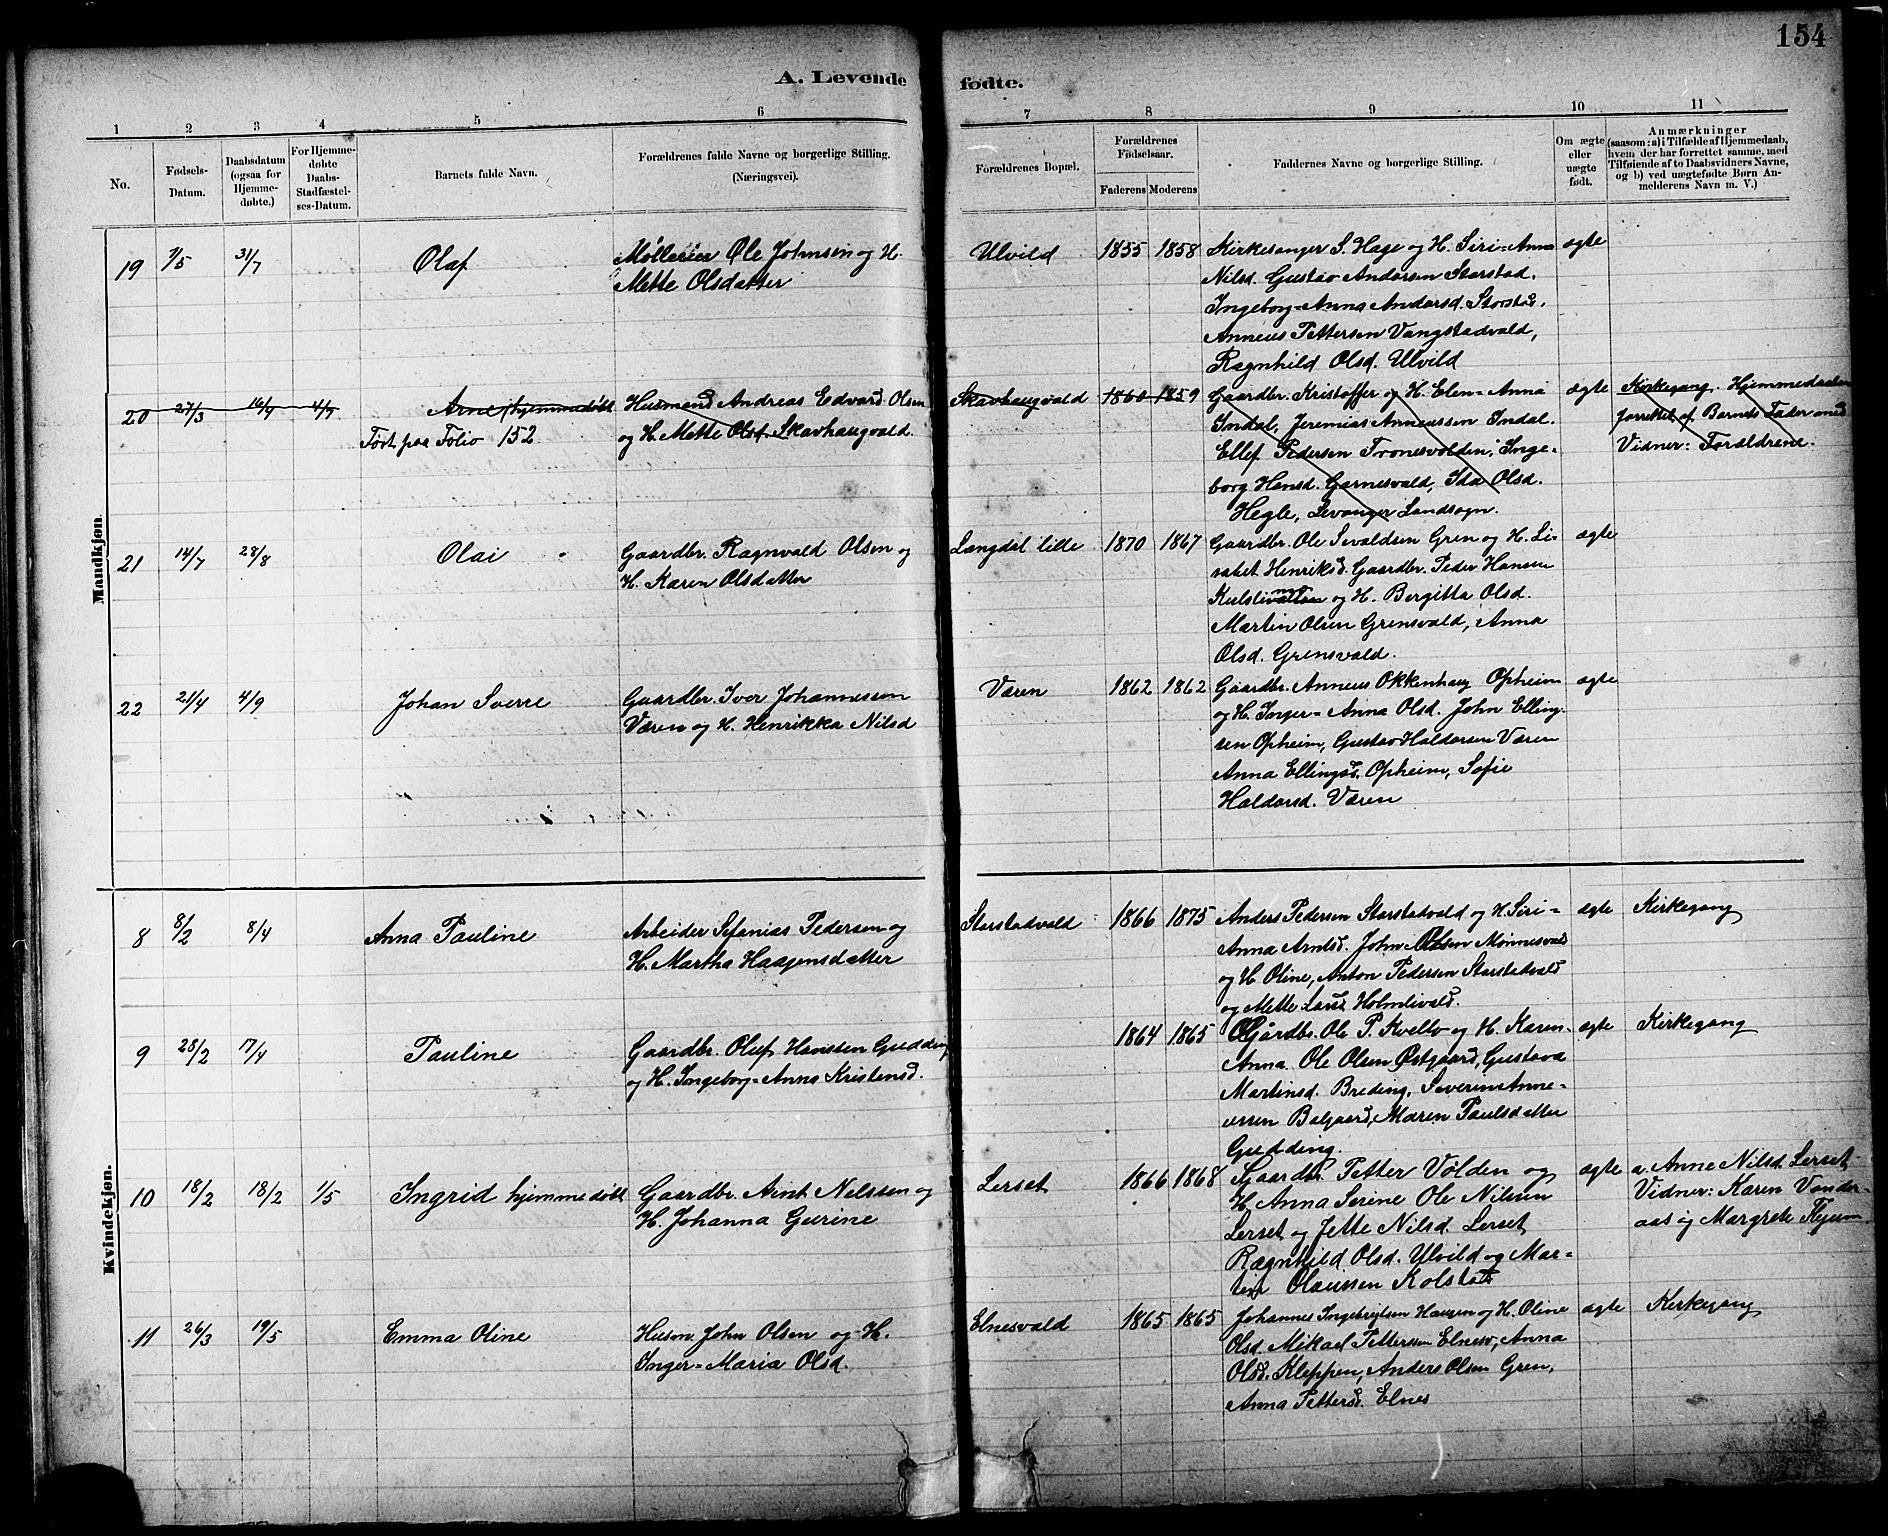 154
A. Levende fødte.
1 2 3 4 5 6 7 8 9 10 11
No.
Fødsels-
Datum.
Daabsdatum
(ogsaa for
Hjemme-
døbte.)
For Hjemme-
døbte
Daabs-
Stadfæstel-
ses-Datum.
Barnets fulde Navn.
Forældrenes fulde Navne og borgerlige Stilling.
(Næringsvei).
Forældrenes Bopæl.
Forældrenes
Fødselsaar.
Faderens Moderens
Faddernes Navne og borgerlige Stilling.
Om ægte
eller
uægte
født.
Anmærkninger
(saasom: a) i Tilfælde af Hjemmedaab,
hvem der har forrettet samme, med
Tilføiende af to Daabsvidners Navne,
og b) ved uægtefødte Børn An-
melderens Navn m. V.)
Mandkjøn.
19 7/5 31/7 Olaf
Møllerier Ole Johnsen og H.
Mette Olsdatter
Ulvild 1855 1858
Kirkesanger S. Hage og H. Siri=Anna
Nilsd. Gustav Andersen Storstad.
Ingeborg=Anna Andersd. Storstad.
Anneus Pettersen Vangstadvald,
Ragnhild Olsd. Ulvild
ægte
20 27/3 16/4 4/7 Arne, hjemmedøbt
Ført paa Folio 152
Husmand Andreas Edvard Olsen
og H. Mette Olsd. Skavhaugvald.
Skavhaugvald 1860 1859
Gaardbr. Kristoffer og H. Elen=Anna
Indal, Jeremias Anneussen Indal.
Ellef Pedersen Tronesvolden, Inge=
borg Hansd. Garnesvald, Ida Olsd.
Hegle, Levanger Landsogn.
ægte
Kirkegang. Hjemmedaaben
forrettet af Barnets Fader med
Vidner: Forældrene.
21 14/7 28/8 Olai
Gaardbr. Ragnvald Olsen og
H. Karen Olsdatter
Langdal lille 1870 1867
Gaardbr. Ole Sevaldsen Gren og H. Li=
sabet Henriksd. Gaardbr. Peder Hansen
og H. Bergitta Olsd.
Martin Olsen Grensvald, Anna
Olsd. Grensvald.
ægte
22 21/4 4/9 Johan Sverre
Gaardbr. Iver Johannessen
Væren og H. Henrikka Nilsd
Væren 1862 1862
Gaardbr. Anneus Okkenhaug Opheim
og H. Inger=Anna Olsd. John Elling=
sen Opheim, Gustav Haldorsen Væren
Anna Ellingsd. Opheim, Sofie
Haldorsd. Væren
ægte
Kvindekjøn.
8 8/2 8/4 Anna Pauline
Arbeider Sefanias Pedersen og
H. Martha Haagensdatter
Storstadvald 1866 1875
Anders Pedersen Storstadvald og H. Siri=
Anna Arntsd. John Olsen Mønnesvald
og H. Oline, Anton Pedersen Storstadvald
og Mette Larsd. Holmlivald.
ægte
Kirkegang
9 28/2 17/4 Pauline
Gaardbr. Oluf Hanssen Gudding
og H. Ingeborg=Anna Kristensd.
1864 1865
Gårdbr. Ole P. Kvello og H. Karen=
Anna. Ole Olsen Østgaard, Gustava
Martinsd. Breding, Severin Anne=
ussen Balgaard, Maren Paulsdatter
Gudding.
ægte
Kirkegang
10 18/2 18/2 1/5 Ingrid hjemmedøbt
Gaardbr. Arnt Nilssen og
H. Johanna Gurine
Lerset 1866 1868
Gaardbr. Petter Volden og
H. Anna Serine Ole Nilsen
Lerset og Jette Nilsd. Lerset,
Ragnhild Olsd. Ulvild og Mar=
tin Olaussen Kolstad
ægte
a. Anne Nilsd. Lerset
Vidner: Karen Vonder=
aas og Margrete
11 26/3 19/5 Emma Oline
Husm. John Olsen og H.
Inger=Maria Olsd.
Elnesvald 1865 1865
Johannes Ingebrigtsen Haugen og H. Oline
Olsd. Mikael Pettersen Elnesv, Anna
Olsd. Kleppen, Anders Olsen Gren,
Anna Pettersd. Elnes
ægte
Kirkegang